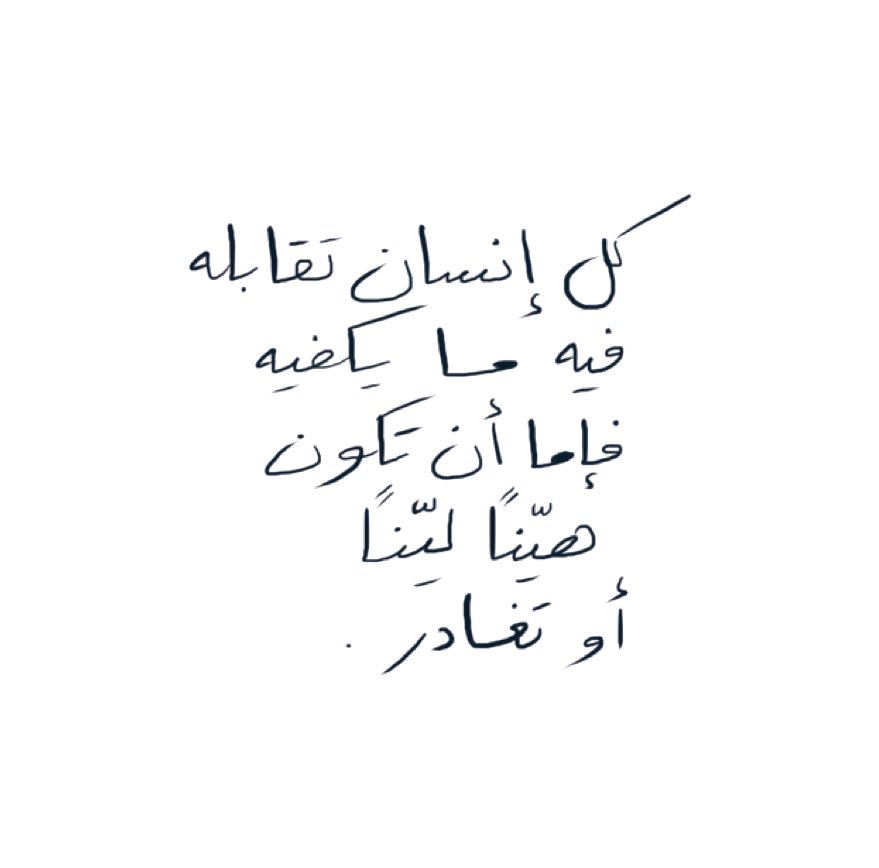 كل إنسان تقابله
فيه ما يكفيه
فإما أن تكون
هيّناً ليّناً
أو تغادر .